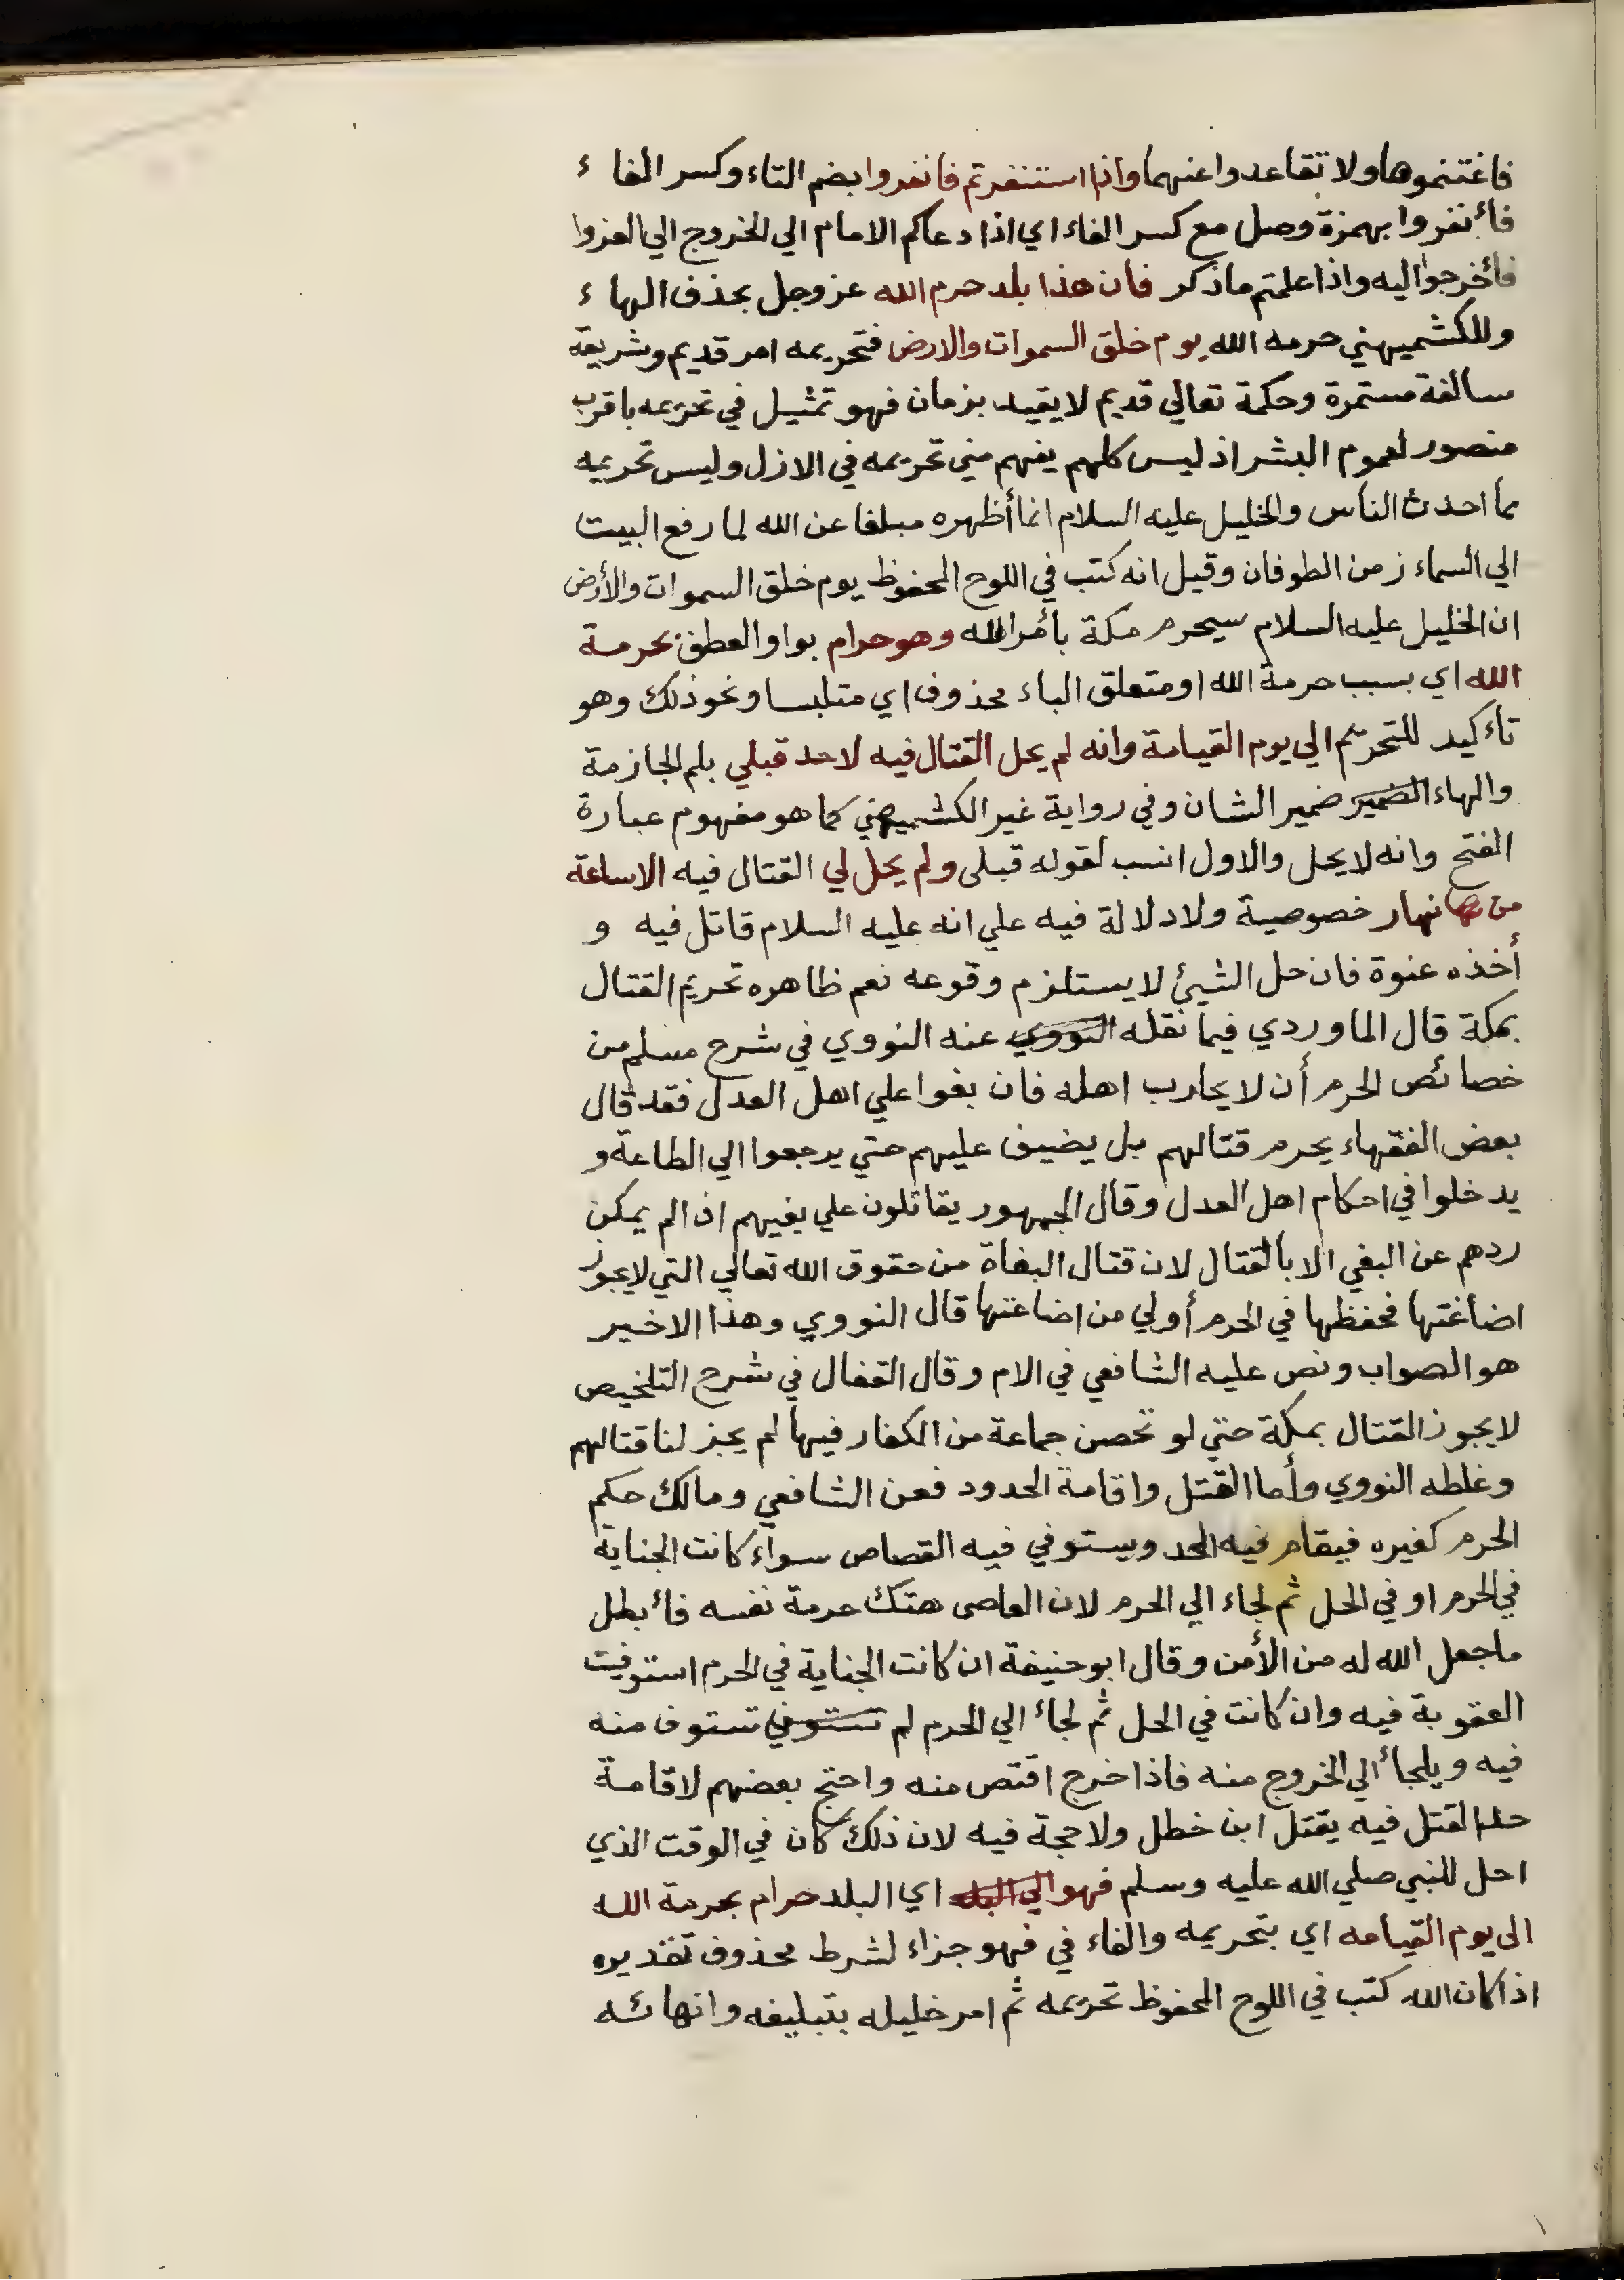 فاغتنموها ولا تقاعدوا عنهما واذا استنفرتم فانفروا بضم التاء وكسر الفاء
فأنفروا بهمزة وصل مع كسر الفاء اي اذا دعاكم الامام الي الخروج الي الغزوا
فأخرجوا اليه واذا علمتم ماذكر فان هذا بلد حرم الله عز وجل بحذف الهاء
وللكشميهني حرمه الله يوم خلق السموات والارض فتحريمه امر قديم وشريعة
سالفة مستمرة وحكمة تعالي قديم لا يقيد بزمان فهو تمثيل في تحريمه باقرب
متصور لعموم البشر اذ ليس كلهم يفهم مني تحريمه في الازل وليس تحريمه
مما احدث الناس والخليل عليه السلام انما أظهره مبلغا عن الله لما رفع البيت
الي السماء زمن الطوفان وقيل انه كتب في اللوح المحفوظ يوم خلق السموات والأرض
ان الخليل عليه السلام سيحرم مكة بأمر الله وهو حرام بواو العطف بحرمة
الله اي بسبب حرمة الله او متعلق الباء محذوف اي متلبسا ونحو ذلك وهو
تأكيد للتحريم الي يوم القيامة وانه لم يحل القتال فيه لاحد قبلي بلم الجازمة
والهاء الضمير ضمير الشان وفي رواية غير الكشميهني كما هو مفهوم عبارة
الفتح وانه لا يحل والاول انسب لقوله قبلي ولم يحل لي القتال فيه الا ساعة
من نهار خصوصية ولا دلالة فيه علي انه عليه السلام قاتل فيه و
أخذه عنوة فان حل الشيئ لا يستلزم وقوعه نعم ظاهره تحريم القتال
بمكة قال الماوردي فيما نقله النووي عنه النووي في شرح مسلم من
خصائص الحرم أن لا يحارب اهله فان بغوا علي اهل العدل فقد قال
بعض الفقهاء يحرم قتالهم بل يضيق عليهم حتي يرجعوا الي الطاعة و
يدخلوا في احكام اهل العدل وقال الجمهور يقاتلون علي بغيهم اذا لم يمكن
ردهم عن البغي الا بالقتال لان قتال البغاة من حقوق الله تعالي التي لا يجوز
اضاعتها فحفظها في الحرم أولي من اضاعتها قال النووي وهذا الاخير
هو الصواب ونص عليه الشافعي في الام وقال القفال في شرح التلخيص
لا يجوز القتال بمكة حتي لو تحصن جماعة من الكفار فيها لم يجز لنا قتالهم
وغلطه النووي وأما القتل واقامة الحدود فعن الشافعي ومالك حكم
الحرم كغيره فيقام فيه الحد ويستوفي فيه القصاص سواء كانت الجناية
في الحرم او في الحل ثم لجاء الي الحرم لان العاصي هتك حرمة نفسه فأبطل
ما جعل الله له من الأمن وقال ابو حنيفة ان كانت الجناية في الحرم استوفيت
العقوبة فيه وان كانت في الحل ثم لجاء الي الحرم لم تستوفي تستوف منه
فيه ويلجأ الي الخروج منه فاذا خرج اقتص منه واحتج بعضهم لاقامة
حد القتل فيه يقتل ابن خطل ولا حجة فيه لان ذلك كان في الوقت الذي
احل للنبي صلي الله عليه وسلم فهو الي البلد اي البلد حرام بحرمة الله
الى يوم القيامه اي بتحريمه والفاء في فهو جزاء لشرط محذوف تقديره
اذا كان الله كتب في اللوح المحفوظ تحريمه ثم امر خليله بتبليغه وانهائه